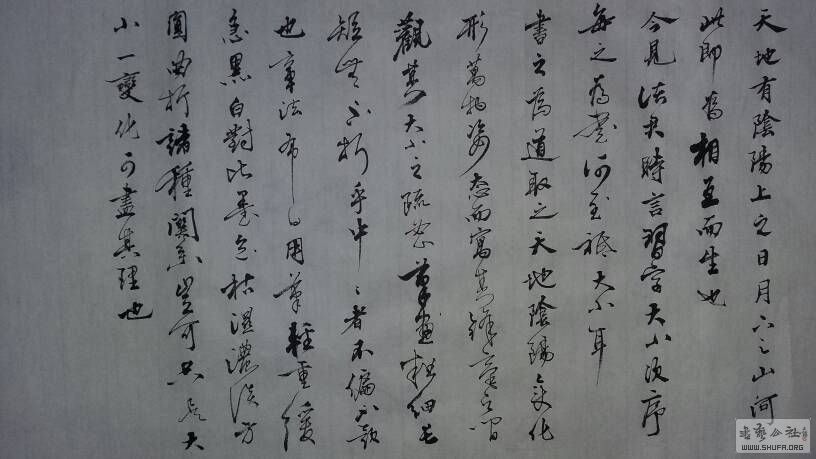 天地有陰陽上之日月下之山河
此即為相互而生也
今見法書時言習字大小次序
每之為書何至祗大小耳
書之為道取之天地陰陽之變化
形萬物姿态而寫其鋒
觀其大小之疏密筆畫粗細長
短無不折乎中中者不偏不歌
也章法布白用筆輕重緩
急黑白對比墨色枯濕濃淡方
圓曲折諸種關系豈可只在大
小一變化可盡其理也
WWW.SHUFA.ORG